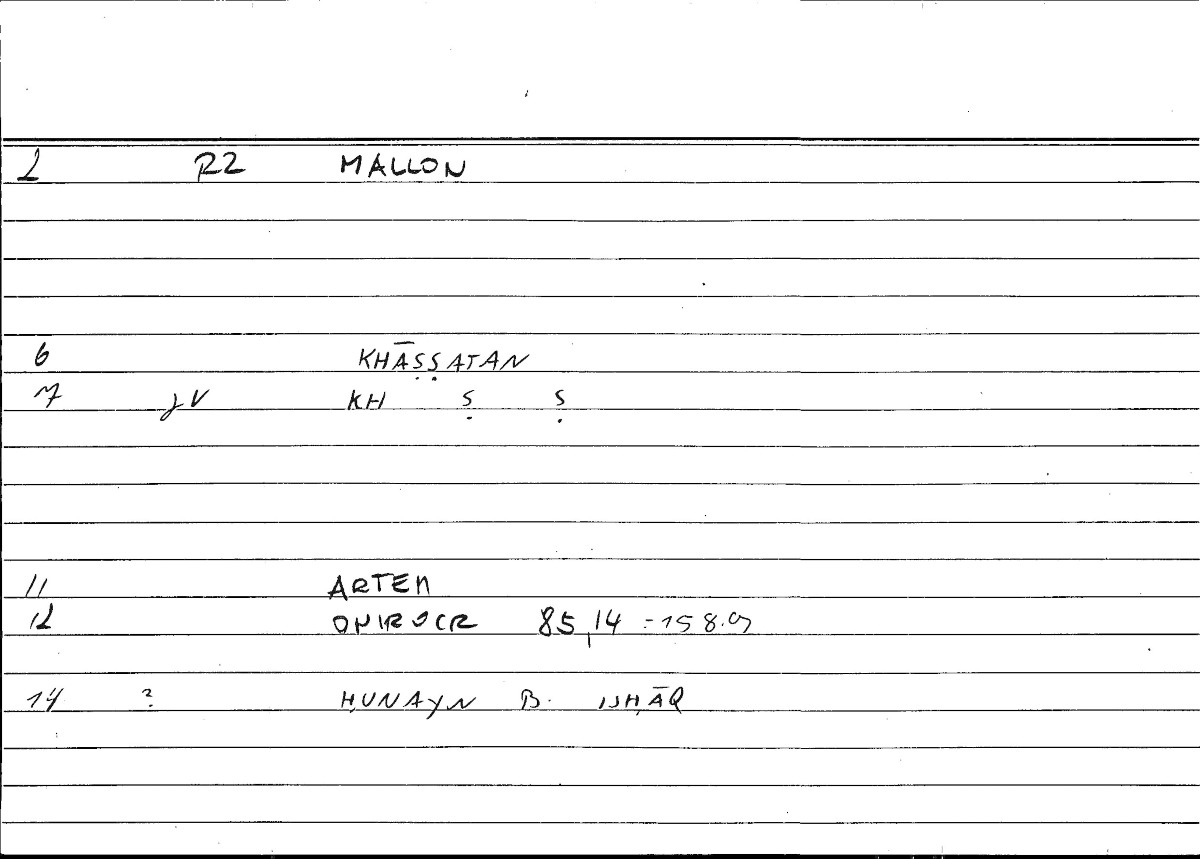 2 RZ MALLON
6 KHĀṢṢATAN
7 JV KH Ṣ Ṣ
11 ARTEM
12 ONIROCR 85,14 = 158.9
14 ? ḤUNAYN B. ISḤĀQ